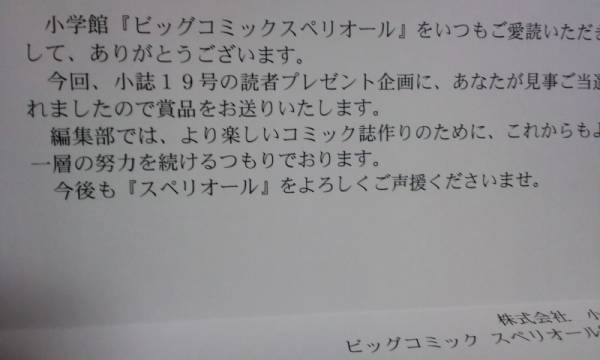 小学館『ビッグコミックスペリオール』をいつもご愛読いただき
して、ありがとうございます。
今回、小誌１９号の読者プレゼント企画に、あなたが見事ご当選
れましたので賞品をお送りいたします。
編集部では、より楽しいコミック誌作りのために、これからもよ
一層の努力を続けるつもりでおります。
今後も『スペリオール』をよろしくご声援くださいませ。
株式会社 小
ビッグコミック スペリオール